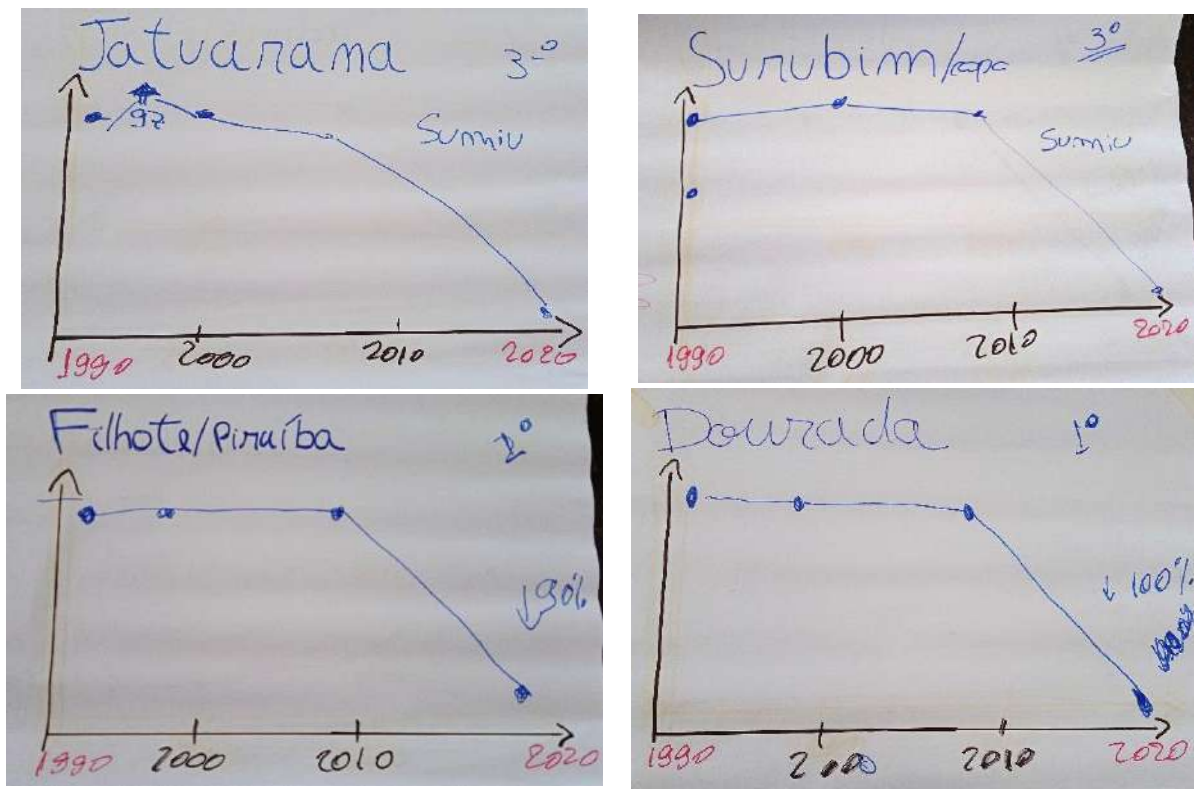 Jatuarama 3º
97
Sumiu
1990 2000 2010 2020
Surubim/capa 3º
Sumiu
1990 2000 2010 2020
Filhote/Piraíba 2º
↓90%
1990 2000 2010 2020
Dourada 1º
↓ 100%
1990 2000 2010 2020